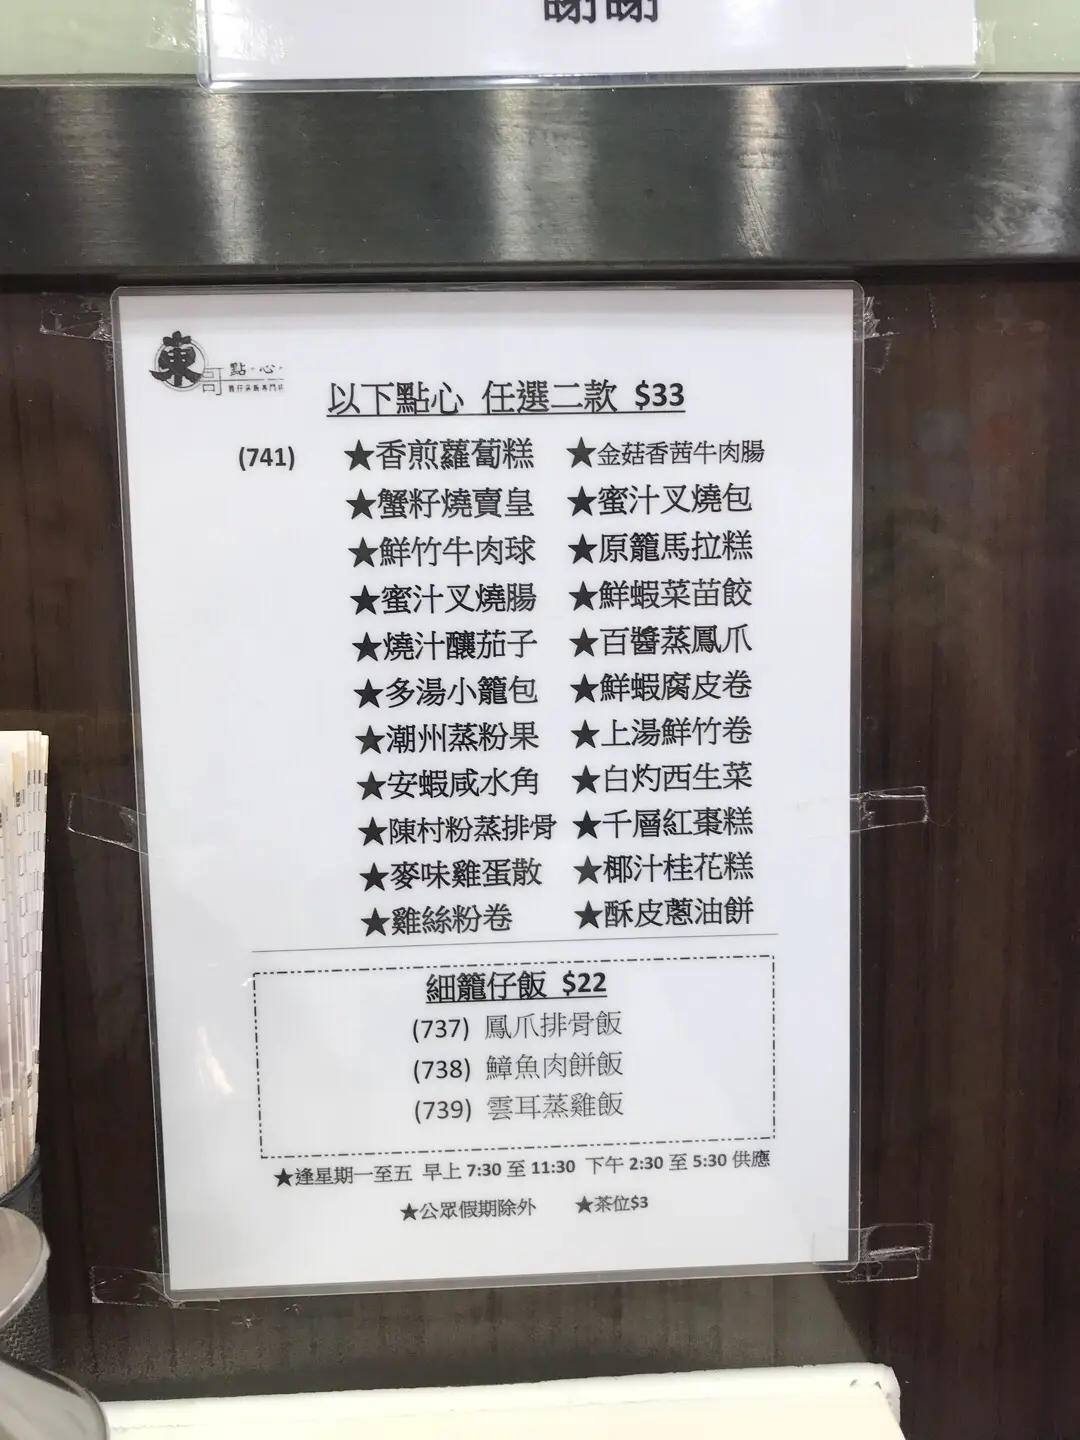 謝謝
東哥 點·心·
以下點心 任選二款 $33
(741) ★香煎蘿蔔糕 ★金菇香茜牛肉腸
★蟹籽燒賣皇 ★蜜汁叉燒包
★鮮竹牛肉球 ★原籠馬拉糕
★蜜汁叉燒腸 ★鮮蝦菜苗餃
★燒汁釀茄子 ★百醬蒸鳳爪
★多湯小籠包 ★鮮蝦腐皮卷
★潮州蒸粉果 ★上湯鮮竹卷
★安蝦咸水角 ★白灼西生菜
★陳村粉蒸排骨 ★千層紅棗糕
★麥味雞蛋散 ★椰汁桂花糕
★雞絲粉卷 ★酥皮蔥油餅
細籠仔飯 $22
(737) 鳳爪排骨飯
(738) 鱆魚肉餅飯
(739) 雲耳蒸雞飯
★逢星期一至五 早上 7:30 至 11:30 下午 2:30 至 5:30 供應
★公眾假期除外 ★茶位$3